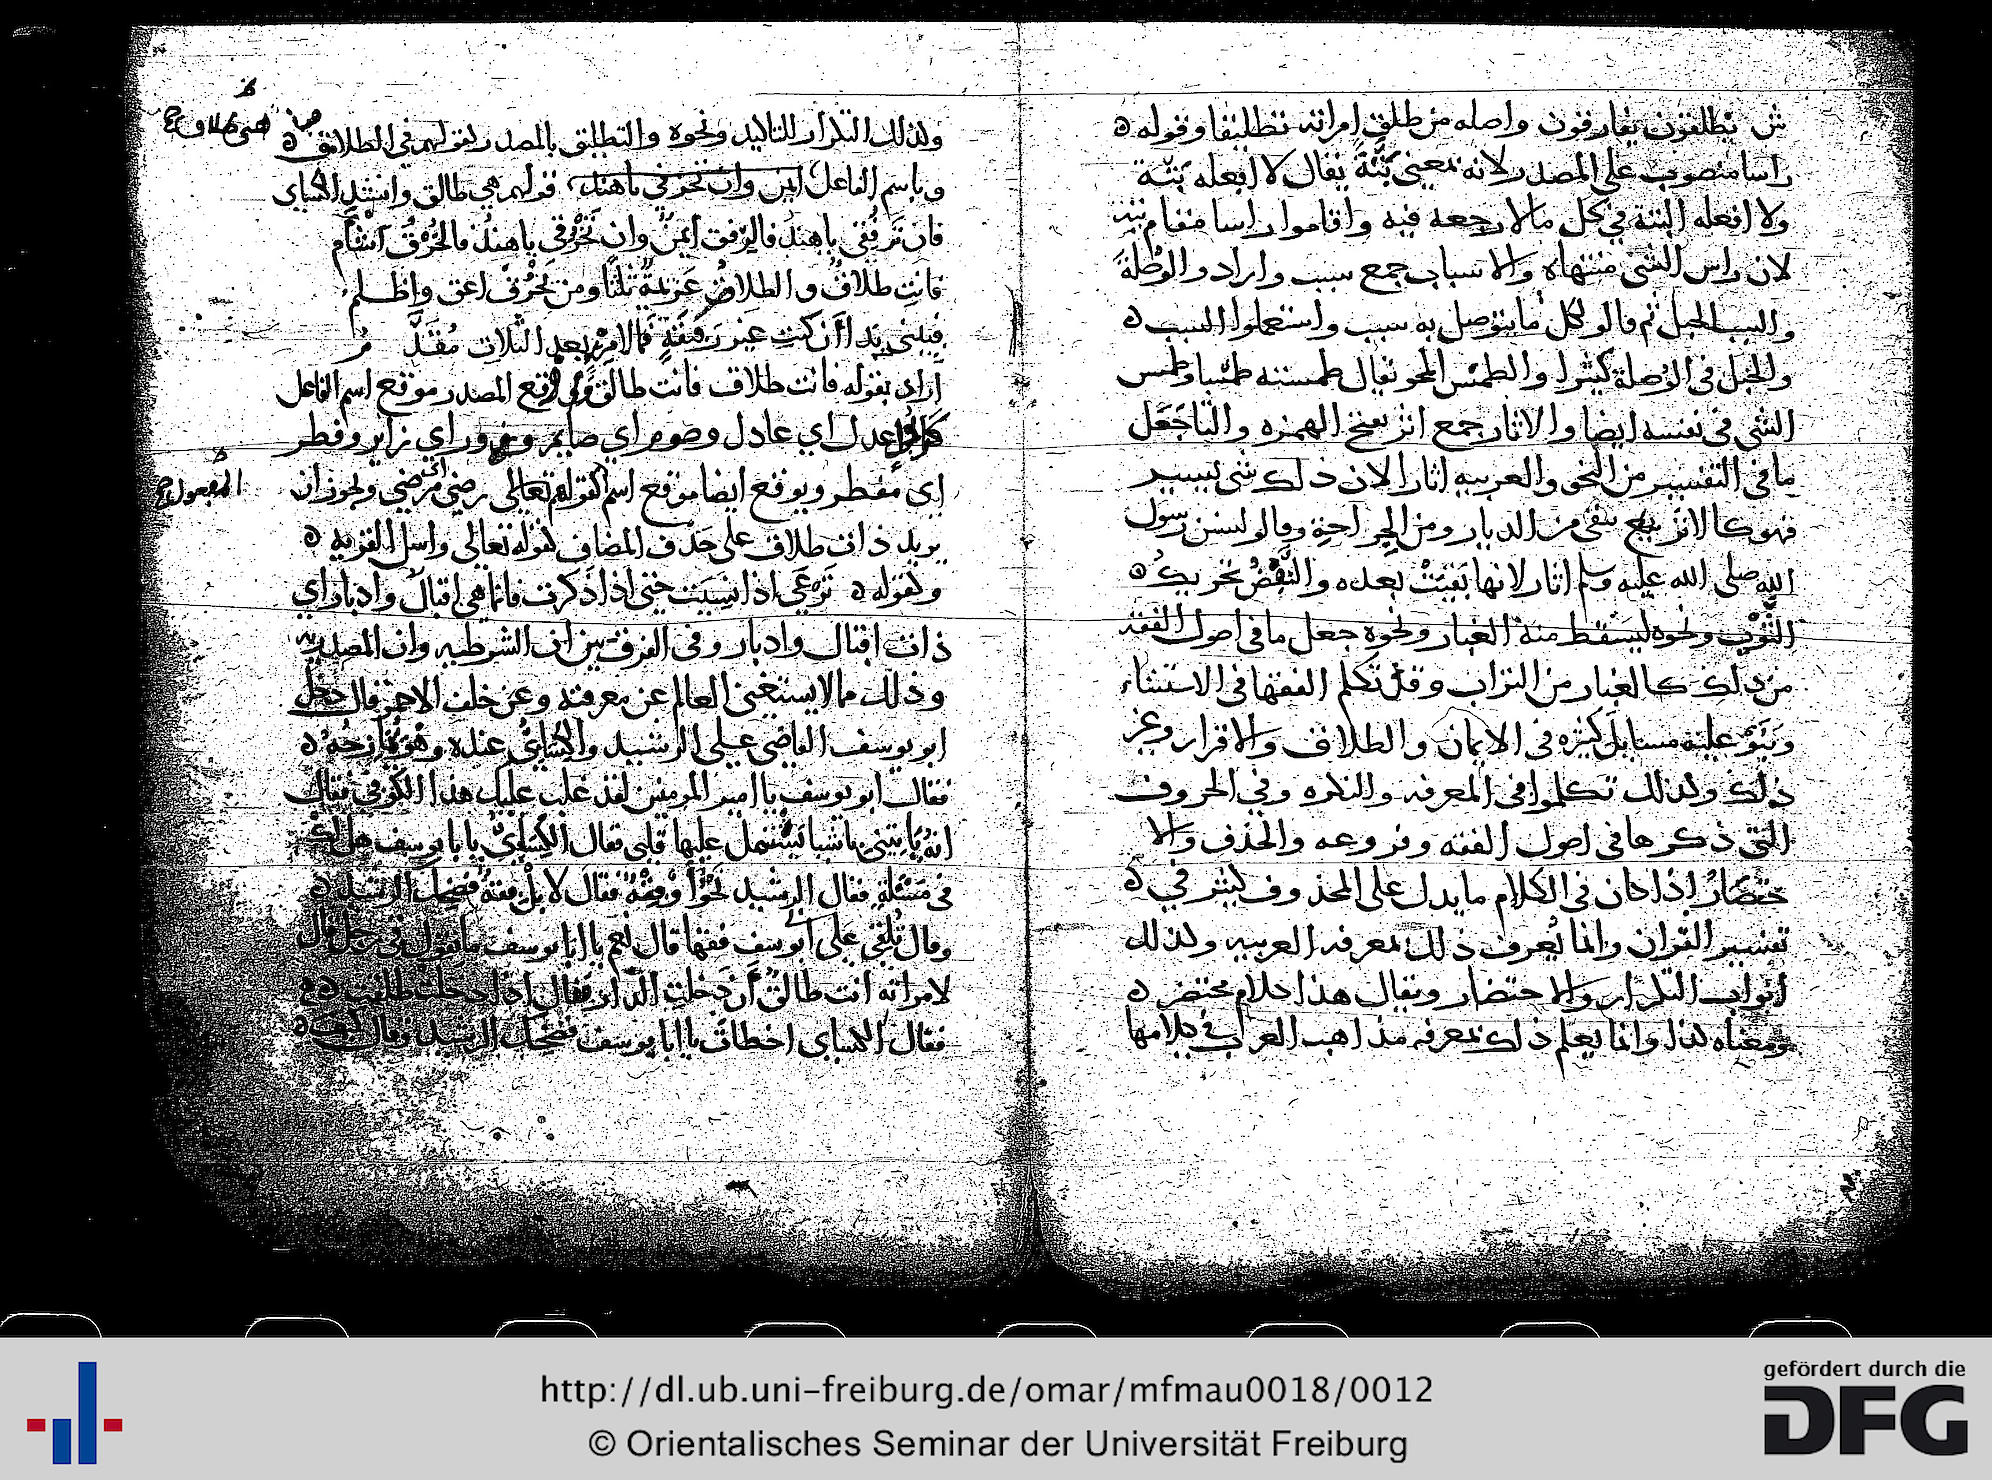 ش يطلقون يفارقون واصله من طلق امراته تطليقا وقوله ه
راسا منصوب على المصدر لانه بمعنى بَتَّةً يقال لا افعله بَتَّة
ولا افعله البتة في كل مالا رجعه فيه واقاموا راسا مقام بتة
لان راس الشى منتهاه والاسباب جمع سبب واراد والوُصْلَة
والسبب الحبل ثم قالو لكل ما يتوصل به سبب واستعملوا السبب ه
والحبل في الوُصلة كثيرا والطمس المحو يقال طمسته طمسا وطمس
الشى في نفسه ايضا والاثار جمع اثر بفتح الهمزه والثا جَعَل
ما في التفسير من النحو والعربيه اثارا لان ذلك شى يسير
فهو كالاثر يبقى من الديار ومن الجراحة وقالو لسنن رسول
الله صلى الله عليه وسلم اثار لانها بَقِيَتْ بعده والنَّفْضُ تحريك ه
الثَّوْبِ ونحوه ليسقط منه الغبار ونحوه جعل ما في اصول الفقه
من ذلك كالغبار من التراب وقد تكلم الفقها في الاستثناء
وبَنَوْ عليه مسايل كثيره في الايمان والطلاق والاقرار وغير
ذلك وكذلك تكلموا في المعرفه والنكره وفي الحروف
التي ذكرها في اصول الفقه وفروعه والحذف والا
ختصارُ اذا كان في الكلام ما يدل على المحذوف كثير في ه
تفسير القران وانما يُعرف ذلك بمعرفه العربيه وكذلك
ابواب التكرار والاختصار ويقال هذا كلام مختصر ه
ومعناه كذا وانما يعلم ذلك بمعرفه مذاهب العرب في كلامها
وكذلك التكرار للتاكيد ونحوه والتطليق بالمصدر كقولهم في الطلاق ه
وباسم الفاعل قولهم هي طالق وانشد الكساي
فان تَرفُقي ياهندُ فالرفق ايمَنُ وان تَخْرُقي ياهندُ فالخُرْقُ اشْأَم
فانتِ طلاقٌ والطلاقُ عَزيمةٌ ثلثا ومن يَخْرُق اعق واظلم
فبيني بها ان كنتِ غير رفيقةٍ فما لامرئٍ بعد الثلاث مُقَدَّم
اراد بقوله فانت طلاق فانت طالق المصدر موقع اسم الفاعل
عدل اي عادل وصوم اي صايم وزور اي زاير وفطر
اي مفطر ويوقع ايضا موقع اسم المفعول كقولهم رضي اي مرضي ويجوز ان
يريد ذات طلاق على حذف المضاف كقوله تعالى واسل القريه ه
وكقوله ه تَرْعَى اذا نسِيَت حتى اذا ذكرت فانما هي اقبالٌ وادبار اي
ذات اقبال وادبار وفي الفرق بين ان الشرطيه وان المصدريه
وذلك مما لا يستغنى العالم عن معرفته وعن خلف الاحمر قال دخل
ابو يوسف القاضي على الرشيد والكسايُّ عنده وهو يُمازحُه ه
فقال ابو يوسف يا امير المومنين لقد غلب عليك هذا الكوفي فقال
انه ياتيني باشيا يَشْتمل عليها قلبي فقال الكسايُّ يا با يوسف هل لك
في مَسْئلةٍ فقال الرشيد نَحْوٌ او فِقْهٌ فقال لا بل فقهٌ فضحك الرشيد ه
وقال تُلقي على ابي يوسف فقها قال نعم يا ابا يوسف ما تقول في رجل قال
لامراته انت طالق أَن دَخلتِ الدّار فقال اذا دخلَتْ طلقت ه
فقال الكساي اخطات يا ابا يوسف فضحك الرشيد وقال كيف ه
http://dl.ub.uni-freiburg.de/omar/mfmau0018/0012
© Orientalisches Seminar der Universität Freiburg
gefördert durch die
DFG